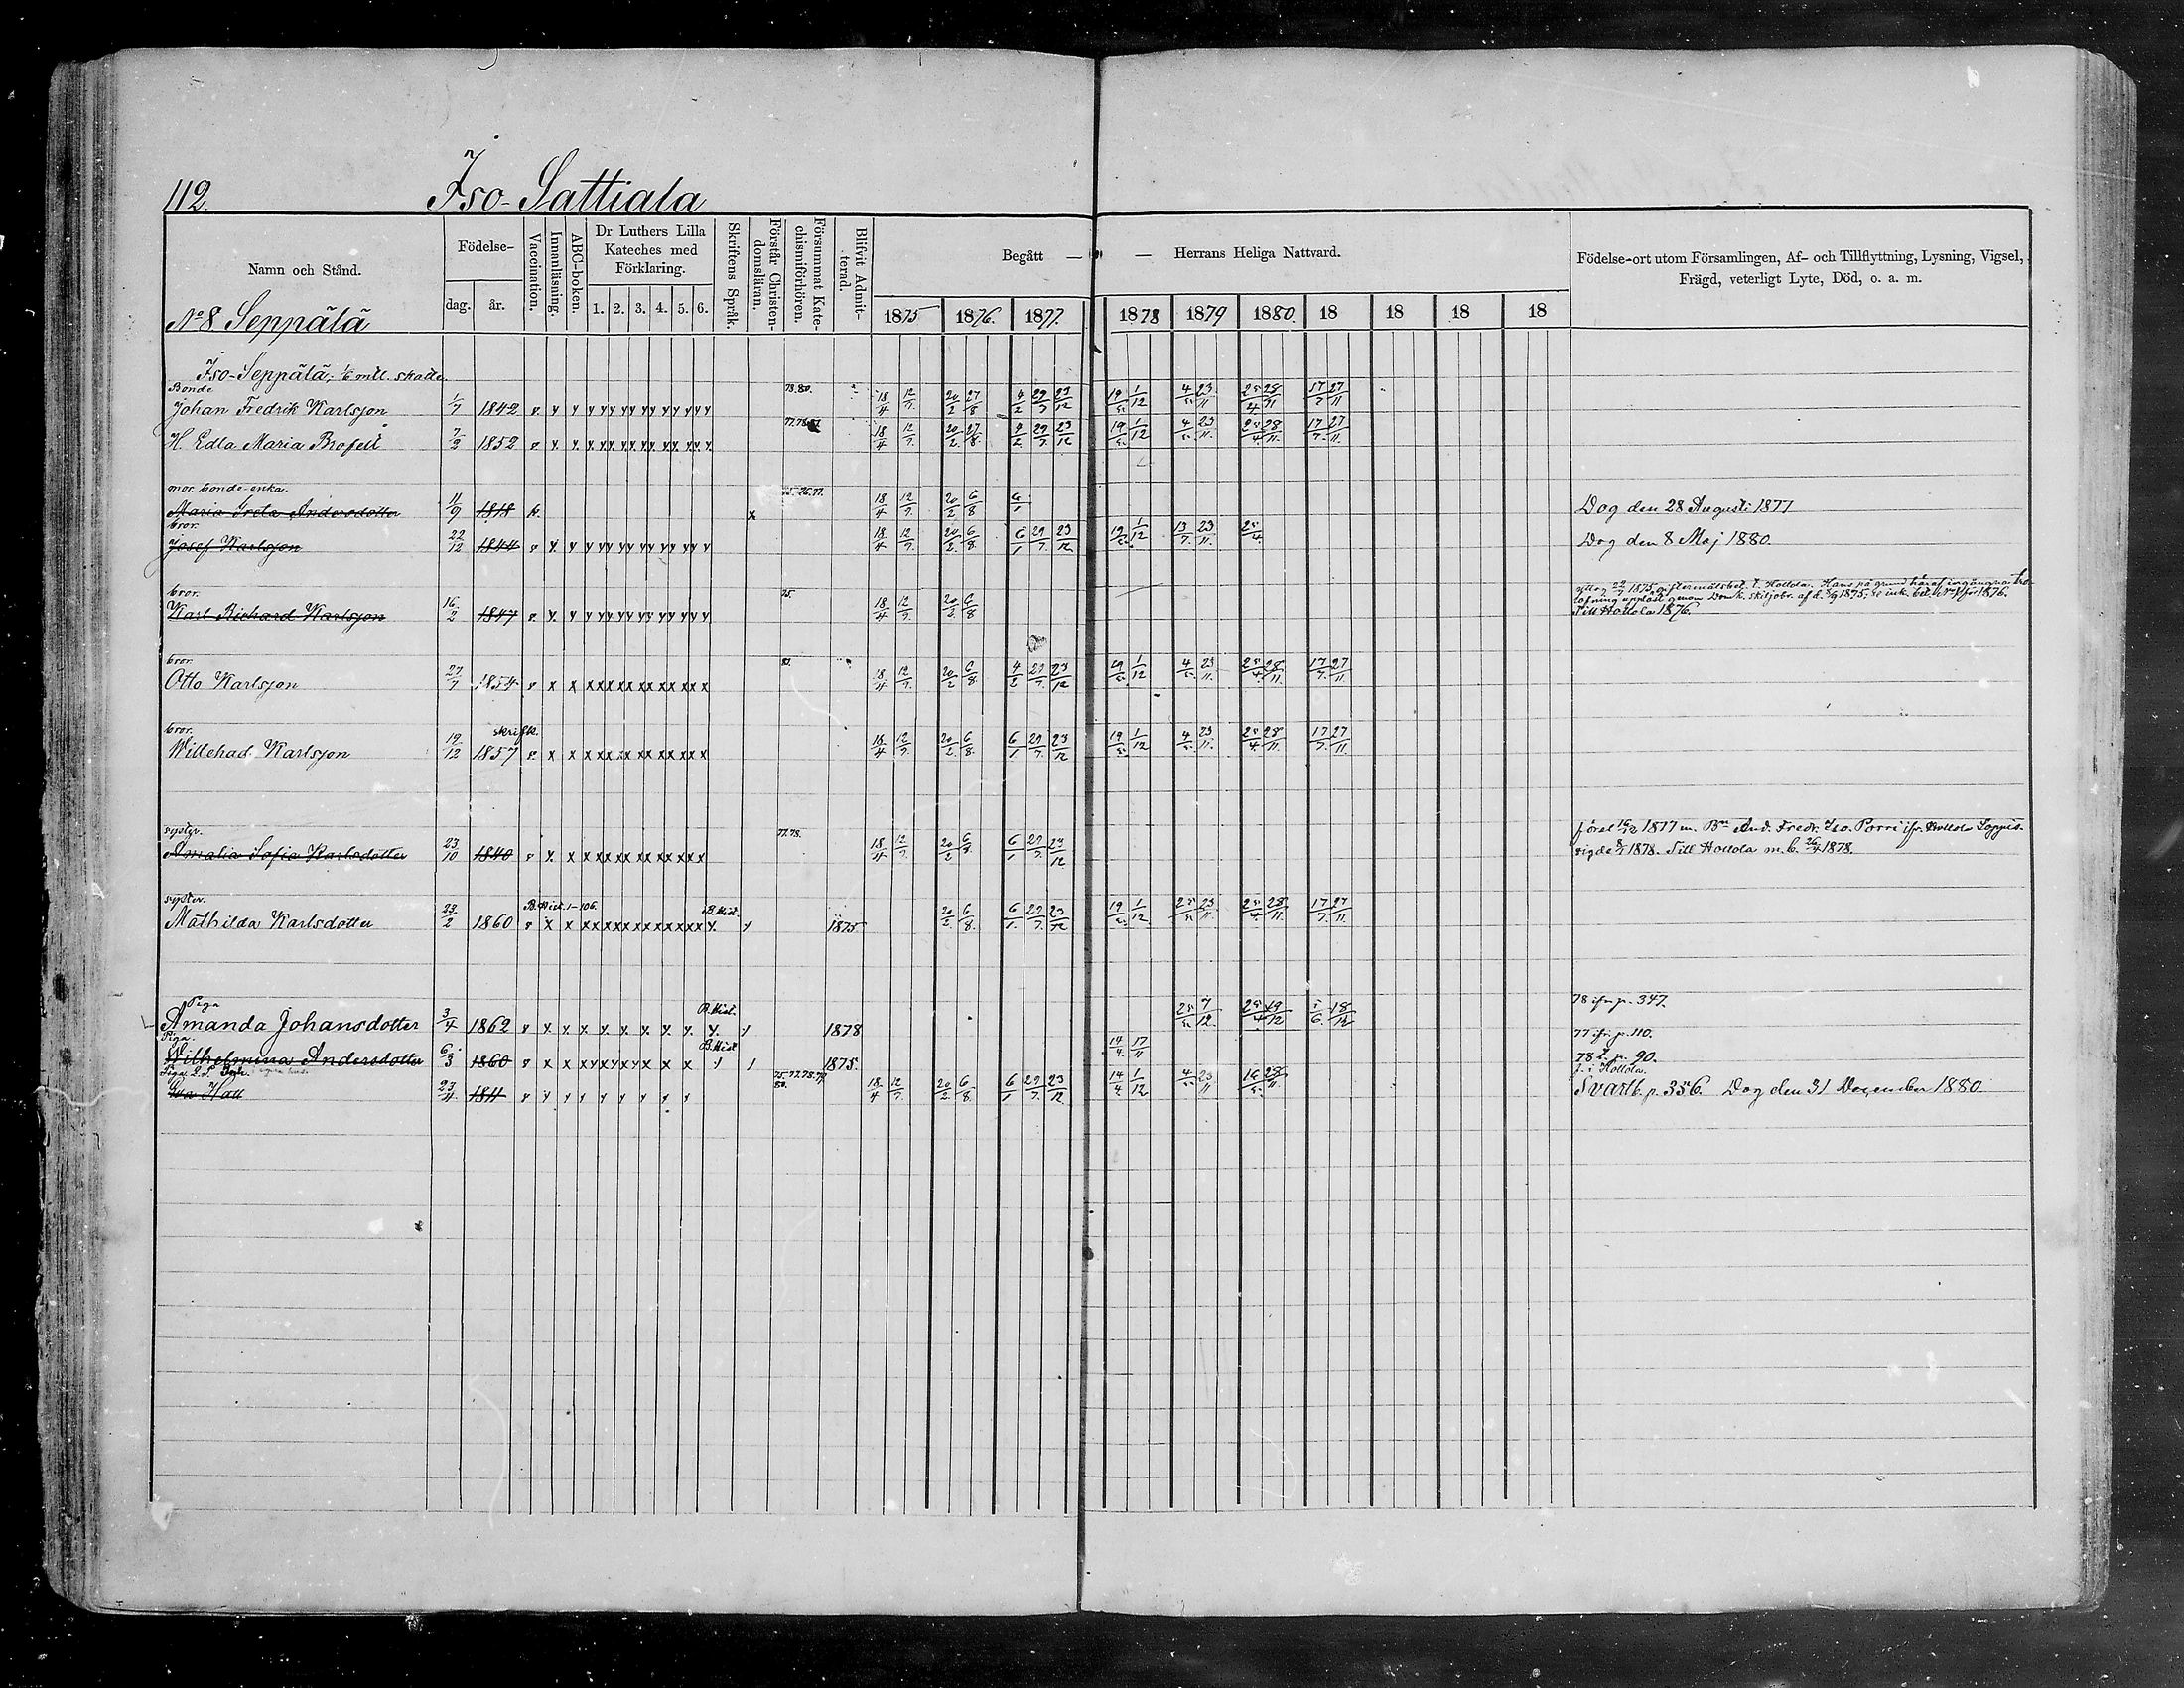 112.
Iso-Sattiala
Namn och Stånd.
Födelse-
dag. år.
Vaccination.
Innanläsning.
ABC-boken.
Dr Luthers Lilla Kateches med Förklaring.
1. 2. 3. 4. 5. 6.
Skriftens Språk.
Förstår Christen-domsläran.
Försummat Kate-chismiförhören.
Blifvit Admit-terad.
Begått — — Herrans Heliga Nattvard.
1875 1876. 1877. 1878 1879 1880. 18 18 18 18
Födelse-ort utom Församlingen, Af- och Tillflyttning, Lysning, Vigsel,
Frägd, veterligt Lyte, Död, o. a. m.
No 8 Seppälä
Iso-Seppälä, 1/6 mtl. skatte.
Bonde
Johan Fredrik Karlsson 1/7 1842 78.80. 18/4 12/9. 20/2 27/8 4/2 29/7 23/12 19/5. 1/12 4/5. 23/11 25/4 28/11 17/7 27/11
H. Edla Maria 7/2 1852 18/4 12/9. 20/2. 27/8. 4/2. 29/7. 23/12 19/5. 1/12 4/5. 23/11. 25/4. 28/11. 17/7. 27/11.
mor. bonde-enka.
Maria Greta Andersdotter 11/9 1818 x 75.76.77. 18/4 12/9. 20/2 6/8 6/1 Dog den 28 Augusti 1877
bror.
Josef Karlsson 22/12 1844 18/4 12/9. 20/2. 6/8. 6/1 29/7. 23/12. 19/5. 1/12 13/7. 23/11. 25/4. Dog den 8 Maj 1880.
bror.
Karl Richard Karlsson 16/2 1847 75. 18/4 12/9. 20/2 6/8
Till Hollola 1876.
bror.
Otto Karlsson 27/7 1854 81. 18/4 12/9. 20/2 6/8. 4/2 29/7. 23/12 19/5. 1/12 4/5. 23/11. 25/4. 28/11. 17/7. 27/11.
bror.
skriftk.
Willehad Karlsson 19/12 1857 18/4 12/9. 20/2. 6/8. 6/1 29/7. 23/12 19/5. 1/12 4/5. 23/11. 25/4. 28/11. 17/7. 27/11.
syster. 77.78.
Amalia Sofia Karlsdotter 23/10 1840 18/4 12/9. 20/2 6/8. 6/1 29/7. 23/12
1877 m. And. Fredr. Iso. Porri ifr. Hollola
vigde 8/1 1878. Till Hollola m. b. 26/4 1878.
syster.
B. Hist. 1-106. B. Hist.
Mathilda Karlsdotter 28/2 1860 1875 20/2. 6/8. 6/1. 29/7. 23/12 19/5. 1/12 25/5. 23/11. 25/4. 28/11. 17/7. 27/11.
Piga
B. Hist.
Amanda Johansdotter 3/4 1862 1878 25/5. 7/12. 25/4 19/12 5/6. 18/12 78 ifr. p. 347.
Piga.
B. Hist
Wilhelmina Andersdotter 6/3 1860 1875. 14/4. 17/11
77 ifr. p. 110.
78 t. p. 90.
f. i Hollola.
Eva 23/11. 1811 75.77.78.79. 80. 18/4 12/9. 20/2. 6/8. 6/1 29/7. 23/12. 14/4 1/12 4/5. 23/11 16/5. 28/11. Svartb. p. 356. Dog den 31 December 1880